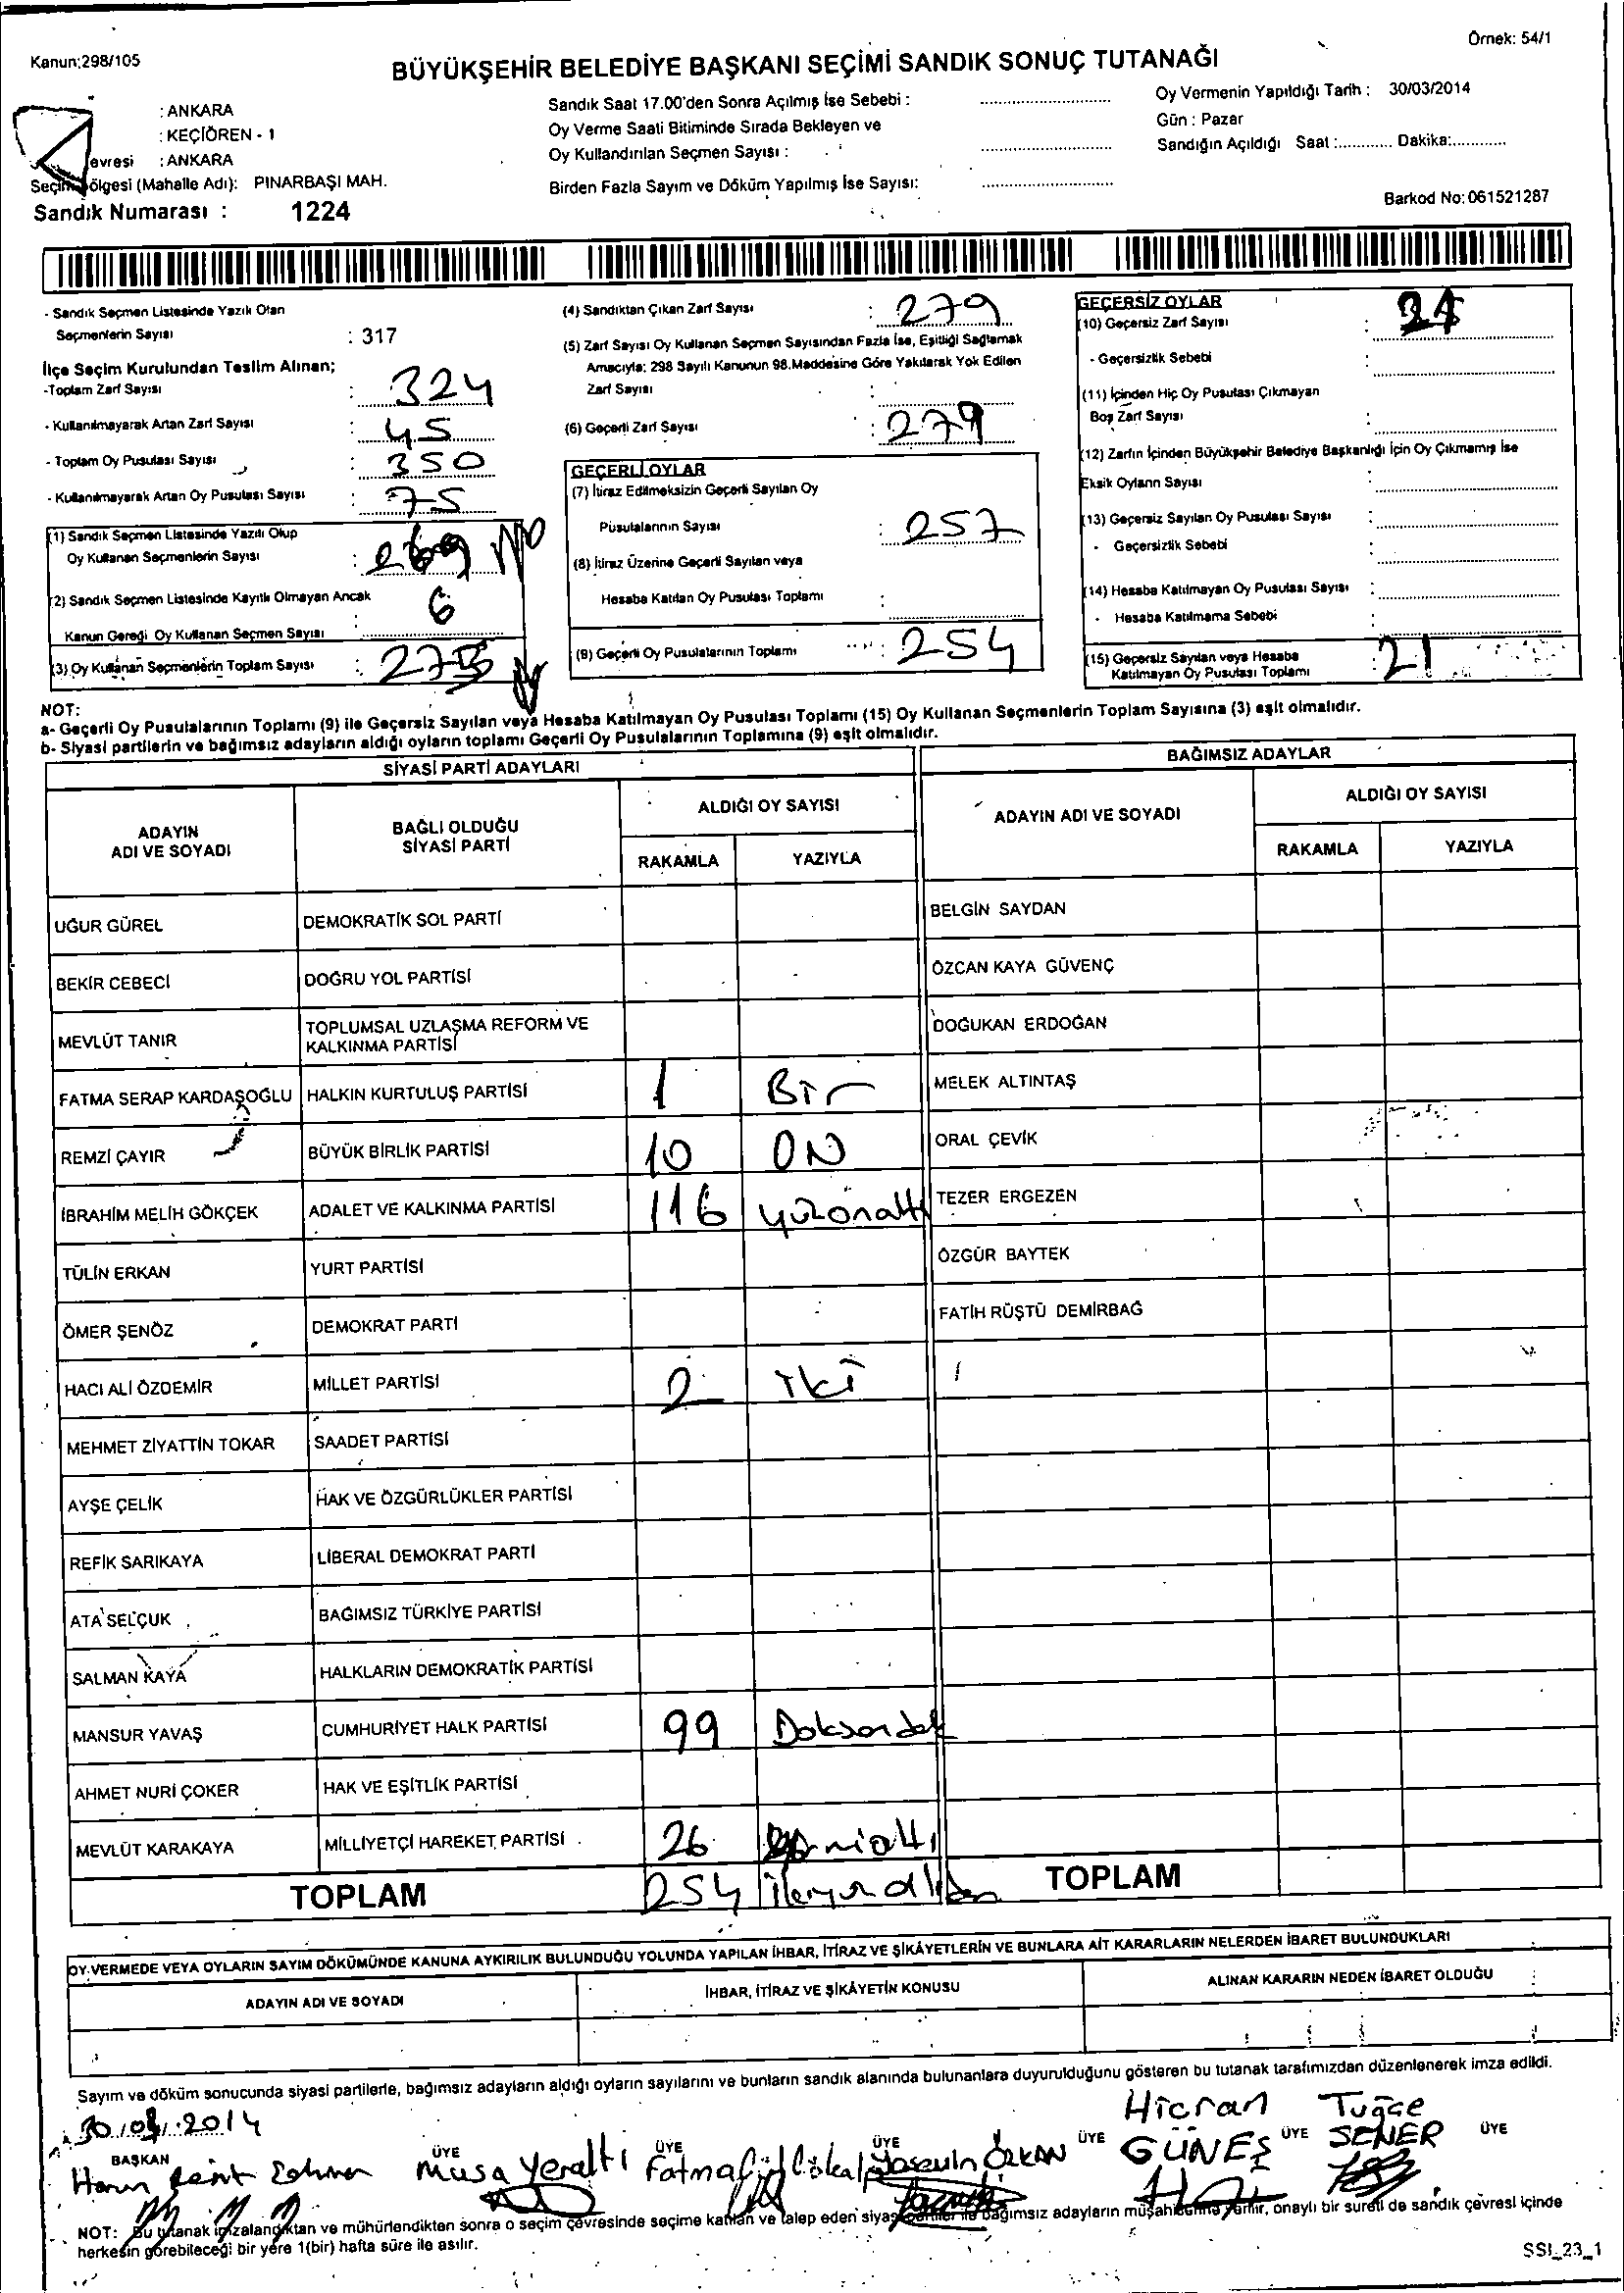 Kanun:298/105
Örnek: 54/1
BÜYÜKŞEHİR BELEDİYE BAŞKANI SEÇİMİ SANDIK SONUÇ TUTANAĞI
: ANKARA
: KEÇİÖREN - 1
evresi : ANKARA
Seçim ölgesi (Mahalle Adı): PINARBAŞI MAH.
Sandık Numarası : 1224
Sandık Saat 17.00'den Sonra Açılmış İse Sebebi :
Oy Verme Saati Bitiminde Sırada Bekleyen ve
Oy Kullandırılan Seçmen Sayısı :
Birden Fazla Sayım ve Döküm Yapılmış İse Sayısı:
Oy Vermenin Yapıldığı Tarih : 30/03/2014
Gün : Pazar
Sandığın Açıldığı Saat :............ Dakika:............
Barkod No: 061521287
- Sandık Seçmen Listesinde Yazılı Olan
Seçmenlerin Sayısı : 317
İlçe Seçim Kurulundan Teslim Alınan;
-Toplam Zarf Sayısı : 324
- Kullanılmayarak Artan Zarf Sayısı : 45
- Toplam Oy Pusulası Sayısı : 350
- Kullanılmayarak Artan Oy Pusulası Sayısı : 75
(1) Sandık Seçmen Listesinde Yazılı Olup
Oy Kullanan Seçmenlerin Sayısı : 269
(2) Sandık Seçmen Listesinde Kayıtlı Olmayan Ancak
Kanun Gereği Oy Kullanan Seçmen Sayısı : 6
(3) Oy Kullanan Seçmenlerin Toplam Sayısı : 275
(4) Sandıktan Çıkan Zarf Sayısı : 279
(5) Zarf Sayısı Oy Kullanan Seçmen Sayısından Fazla İse, Eşitliği Sağlamak
Amacıyla; 298 Sayılı Kanunun 98.Maddesine Göre Yakılarak Yok Edilen
Zarf Sayısı :
(6) Geçerli Zarf Sayısı : 279
GEÇERLİ OYLAR
(7) İtiraz Edilmeksizin Geçerli Sayılan Oy
Pusulalarının Sayısı : 257
(8) İtiraz Üzerine Geçerli Sayılan veya
Hesaba Katılan Oy Pusulası Toplamı :
(9) Geçerli Oy Pusulalarının Toplamı : 254
GEÇERSİZ OYLAR
(10) Geçersiz Zarf Sayısı : 21
- Geçersizlik Sebebi :
(11) İçinden Hiç Oy Pusulası Çıkmayan
Boş Zarf Sayısı :
(12) Zarfın İçinden Büyükşehir Belediye Başkanlığı İçin Oy Çıkmamış İse
Eksik Oyların Sayısı :
(13) Geçersiz Sayılan Oy Pusulası Sayısı :
- Geçersizlik Sebebi :
(14) Hesaba Katılmayan Oy Pusulası Sayısı :
- Hesaba Katılmama Sebebi :
(15) Geçersiz Sayılan veya Hesaba
Katılmayan Oy Pusulası Toplamı : 21
NOT:
a- Geçerli Oy Pusulalarının Toplamı (9) ile Geçersiz Sayılan veya Hesaba Katılmayan Oy Pusulası Toplamı (15) Oy Kullanan Seçmenlerin Toplam Sayısına (3) eşit olmalıdır.
b- Siyasi partilerin ve bağımsız adayların aldığı oyların toplamı Geçerli Oy Pusulalarının Toplamına (9) eşit olmalıdır.
SİYASİ PARTİ ADAYLARI
ADAYIN
ADI VE SOYADI
BAĞLI OLDUĞU
SİYASİ PARTİ
ALDIĞI OY SAYISI
RAKAMLA YAZIYLA
UĞUR GÜREL DEMOKRATİK SOL PARTİ
BEKİR CEBECİ DOĞRU YOL PARTİSİ
MEVLÜT TANIR TOPLUMSAL UZLAŞMA REFORM VE
KALKINMA PARTİSİ
FATMA SERAP KARDAŞOĞLU HALKIN KURTULUŞ PARTİSİ 1 Bir
REMZİ ÇAYIR BÜYÜK BİRLİK PARTİSİ 10 ON
İBRAHİM MELİH GÖKÇEK ADALET VE KALKINMA PARTİSİ 116 yüzonaltı
TÜLİN ERKAN YURT PARTİSİ
ÖMER ŞENÖZ DEMOKRAT PARTİ
HACI ALİ ÖZDEMİR MİLLET PARTİSİ 2 iki
MEHMET ZİYATTİN TOKAR SAADET PARTİSİ
AYŞE ÇELİK HAK VE ÖZGÜRLÜKLER PARTİSİ
REFİK SARIKAYA LİBERAL DEMOKRAT PARTİ
ATA SELÇUK BAĞIMSIZ TÜRKİYE PARTİSİ
SALMAN KAYA HALKLARIN DEMOKRATİK PARTİSİ
MANSUR YAVAŞ CUMHURİYET HALK PARTİSİ 99
AHMET NURİ ÇOKER HAK VE EŞİTLİK PARTİSİ
MEVLÜT KARAKAYA MİLLİYETÇİ HAREKET PARTİSİ 26
TOPLAM 254
BAĞIMSIZ ADAYLAR
ADAYIN ADI VE SOYADI
ALDIĞI OY SAYISI
RAKAMLA YAZIYLA
BELGİN SAYDAN
ÖZCAN KAYA GÜVENÇ
DOĞUKAN ERDOĞAN
MELEK ALTINTAŞ
ORAL ÇEVİK
TEZER ERGEZEN
ÖZGÜR BAYTEK
FATİH RÜŞTÜ DEMİRBAĞ
TOPLAM
OY VERMEDE VEYA OYLARIN SAYIM DÖKÜMÜNDE KANUNA AYKIRILIK BULUNDUĞU YOLUNDA YAPILAN İHBAR, İTİRAZ VE ŞİKÂYETLERİN VE BUNLARA AİT KARARLARIN NELERDEN İBARET BULUNDUKLARI
ADAYIN ADI VE SOYADI İHBAR, İTİRAZ VE ŞİKÂYETİN KONUSU ALINAN KARARIN NEDEN İBARET OLDUĞU
Sayım ve döküm sonucunda siyasi partilerle, bağımsız adayların aldığı oyların sayılarını ve bunların sandık alanında bulunanlara duyurulduğunu gösteren bu tutanak tarafımızdan düzenlenerek imza edildi.
30/03/2014
BAŞKAN ÜYE ÜYE ÜYE ÜYE ÜYE ÜYE
Musa Yeraltı
ÖZKAN
Hicran
GÜNEŞ
Tuğçe
SENER
NOT: Bu tutanak imzalandıktan ve mühürlendikten sonra o seçim çevresinde seçime katılan ve talep eden siyasi partiler ile bağımsız adayların müşahitlerine verilir, onaylı bir sureti de sandık çevresi içinde
herkesin görebileceği bir yere 1(bir) hafta süre ile asılır.
SSI_23_1